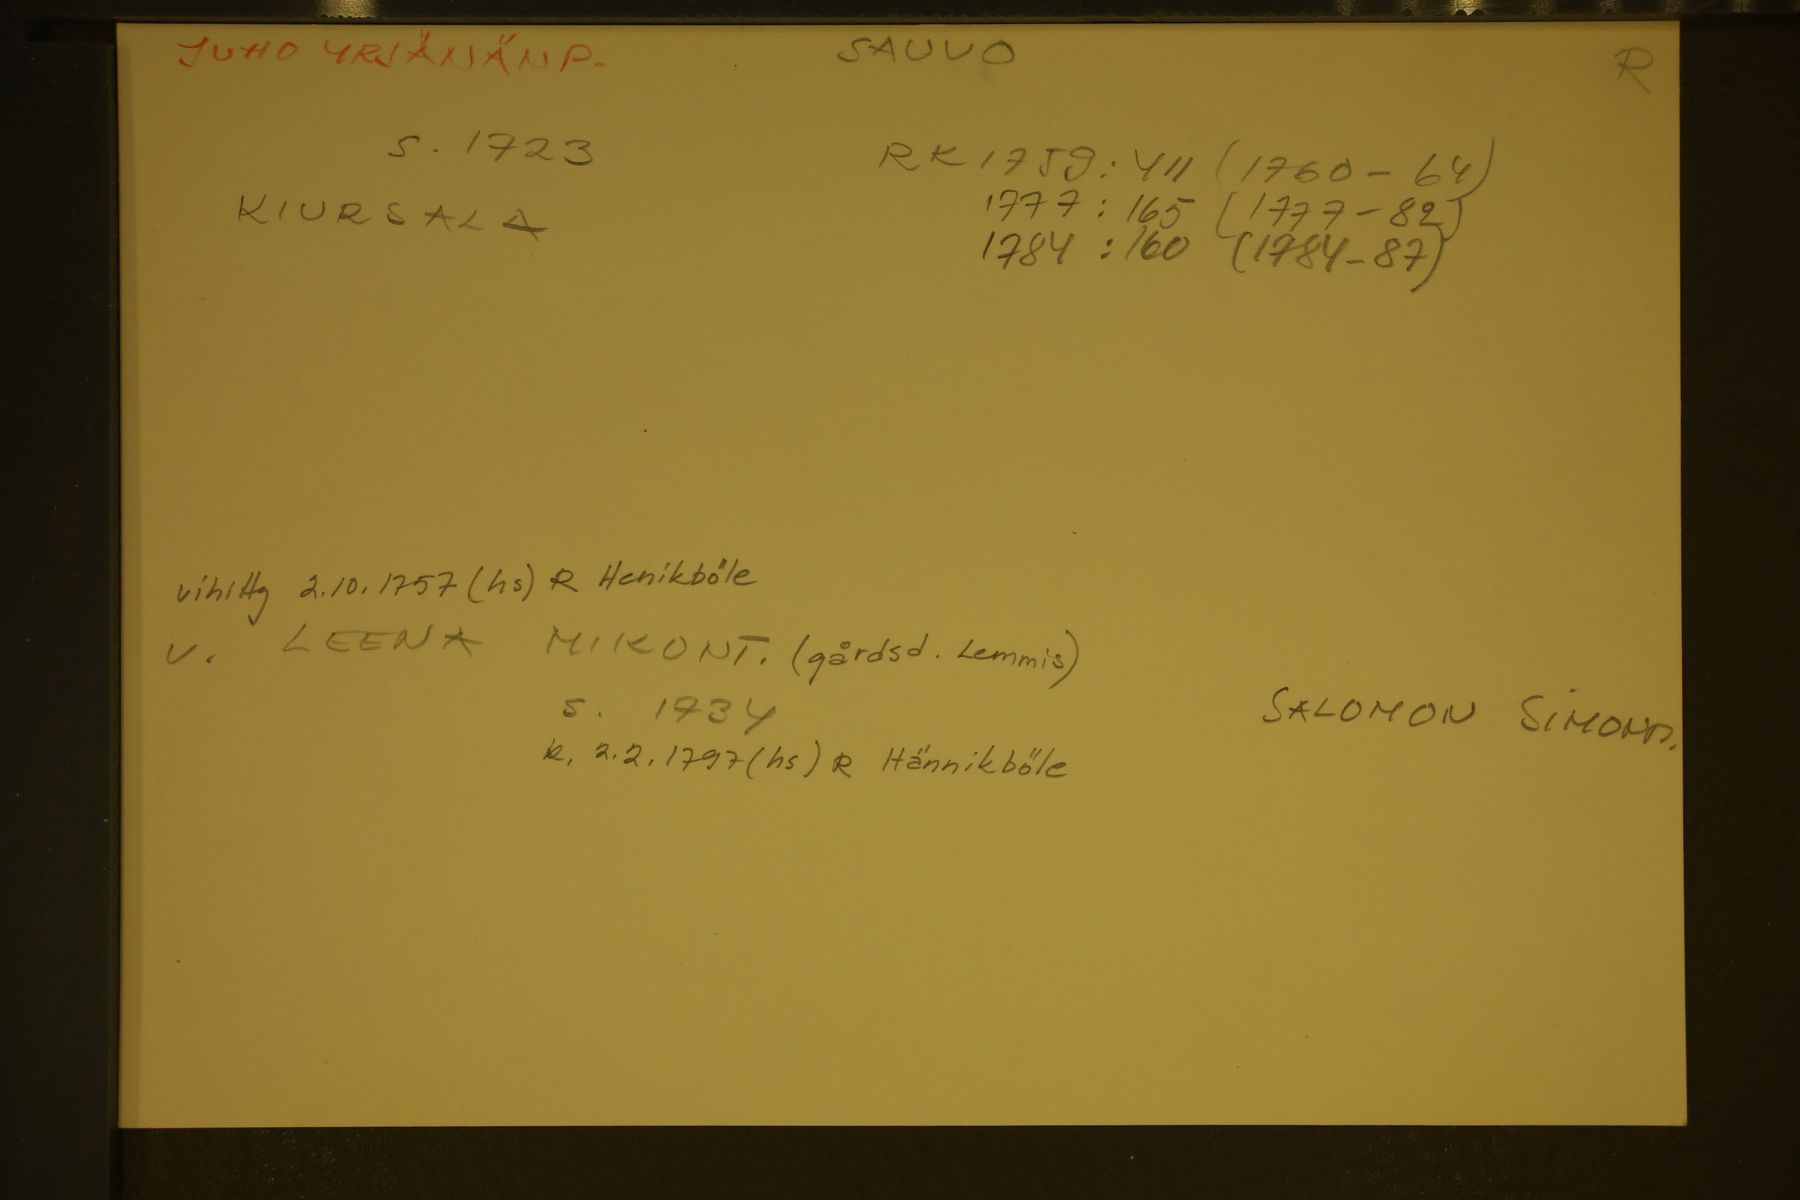 JUHO YRJÄNÄNP. SAUVO R
S. 1723
RK 1759: 411 (1760-64)
KIURSALA
1777: 165 (1777-82)
1784: 160 (1784-87)
vihitty 2.10.1757 (hs) R Henikböle
v. LEENA MIKONT. (gårdsd. Lemmis)
s. 1734
SALOMON SIMONP.
k. 2.2.1797 (hs) R Hännikböle